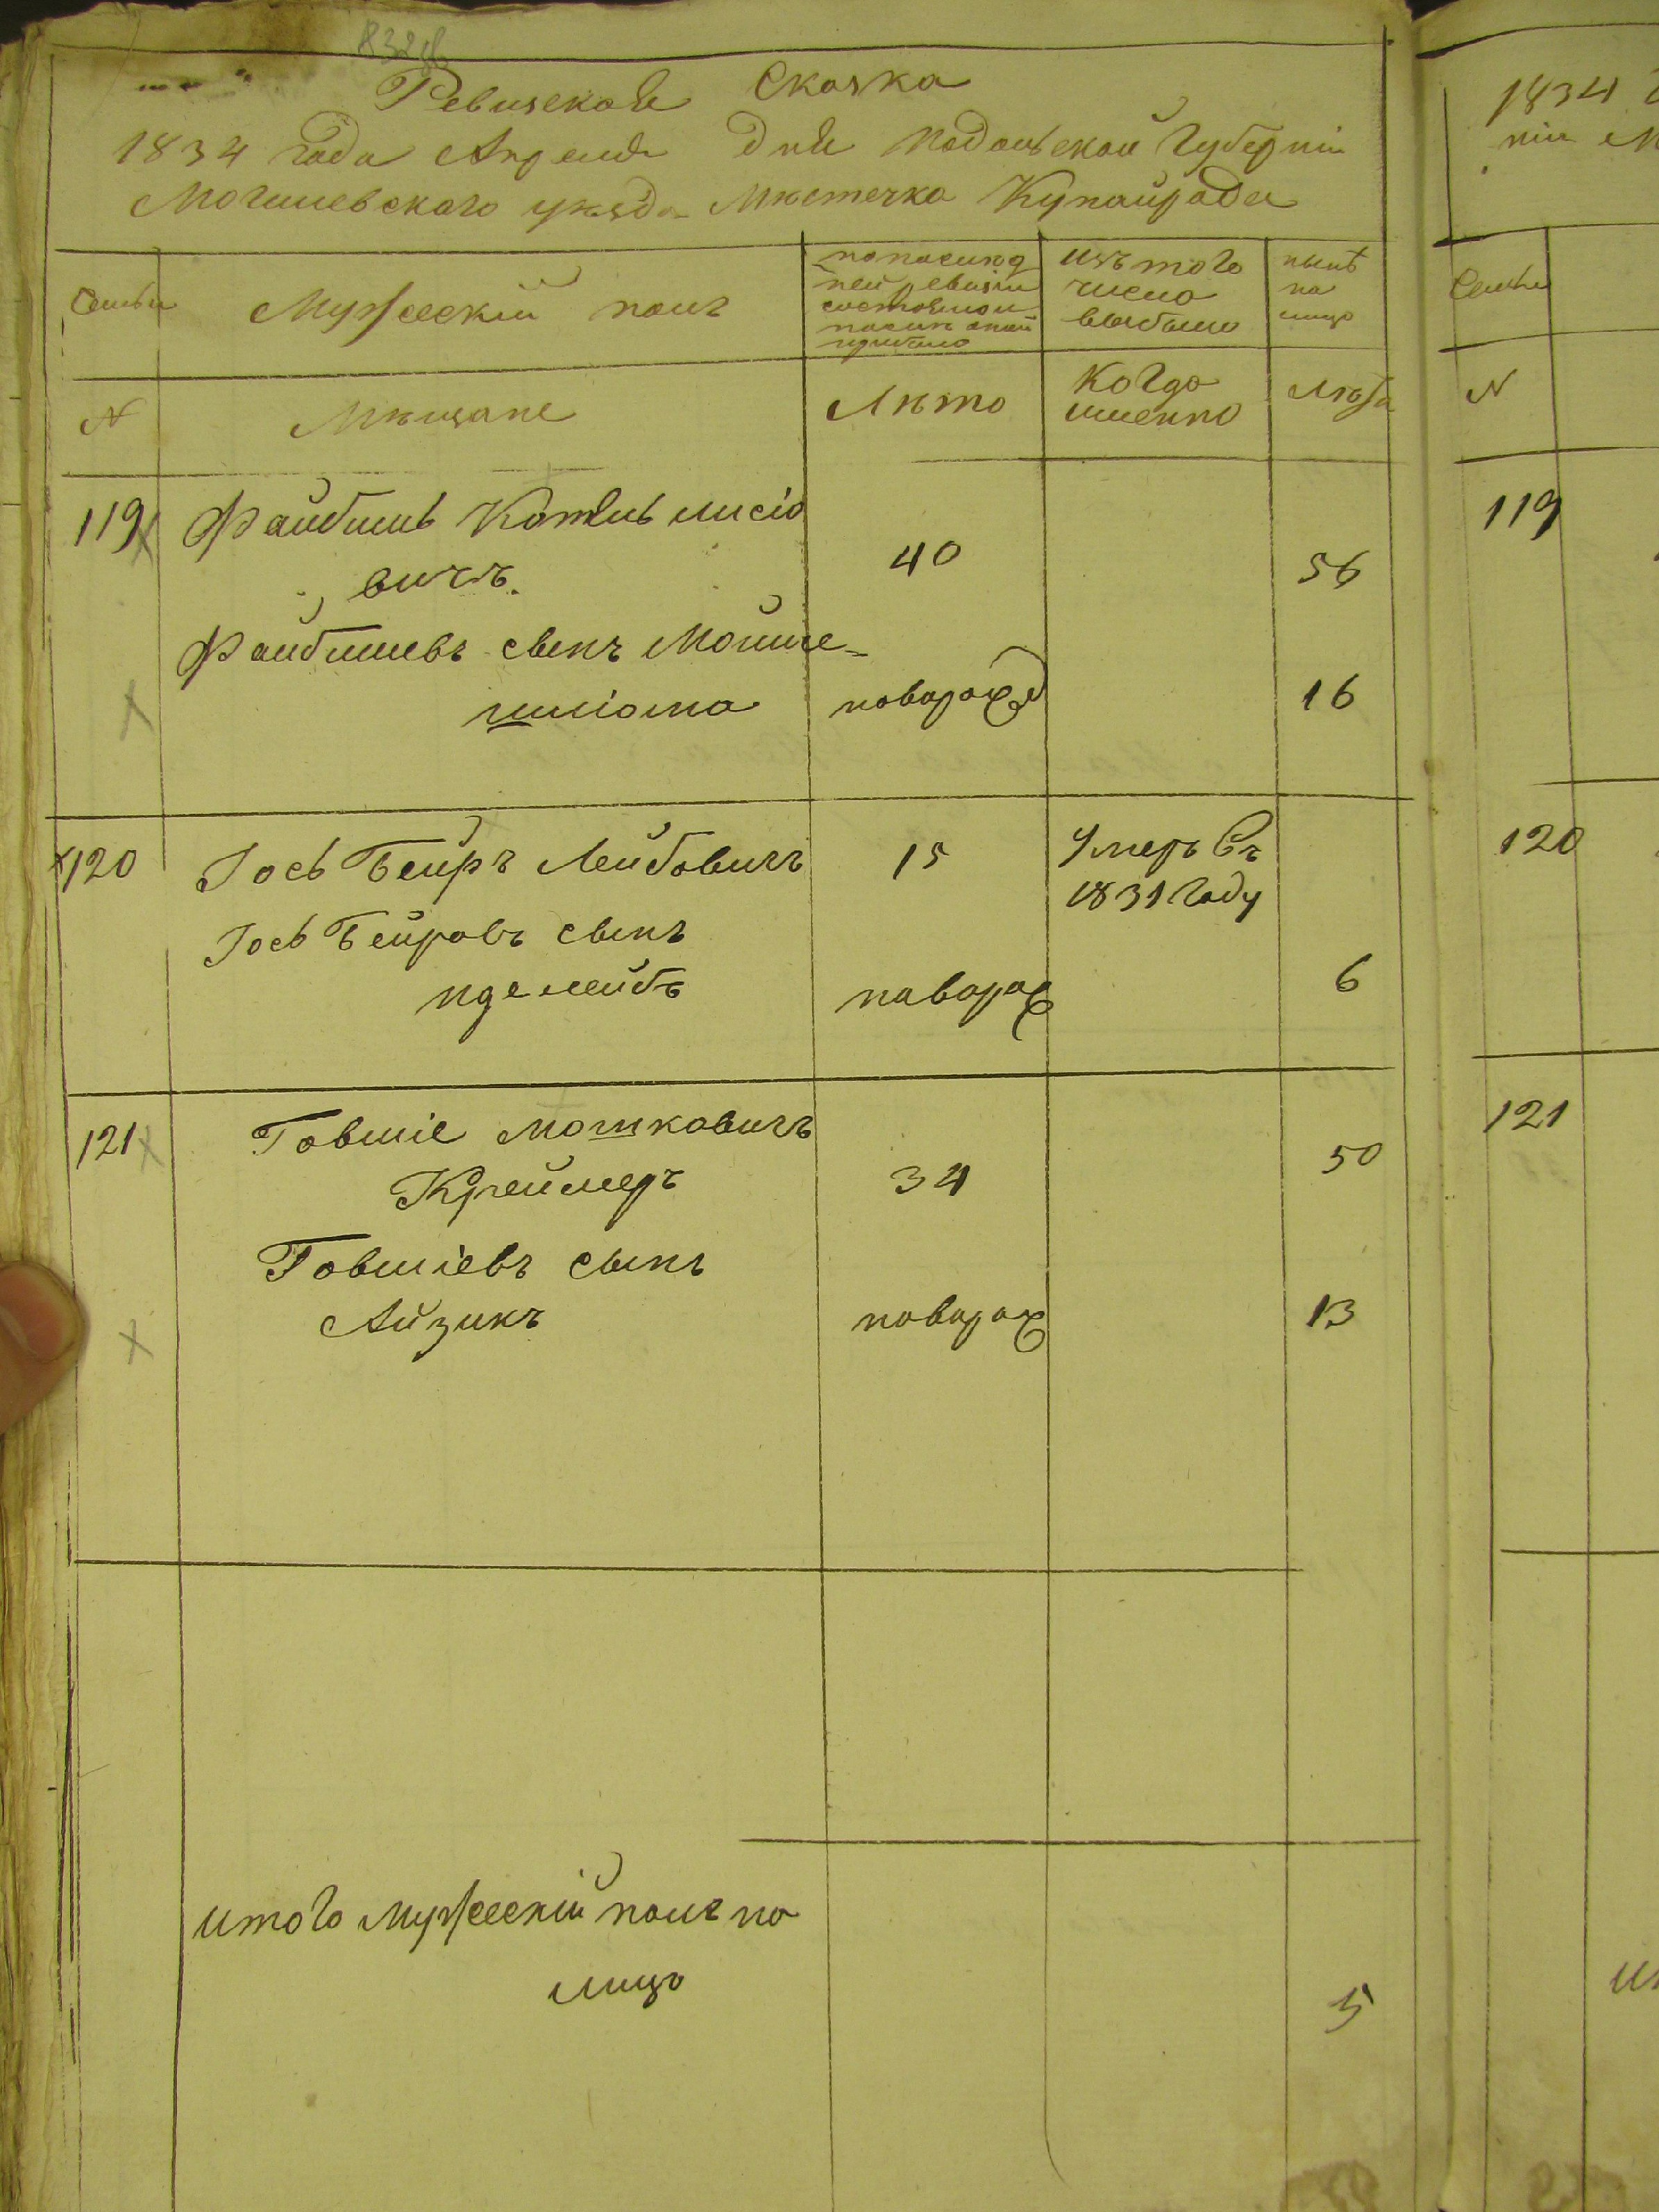 Ревизская Сказка
1834 года Апреля дня Подольской Губерніи
Могилевского уѣзда Мѣстечка Купайрода
Семьи
Мужескій полъ
по послѣд
ней ревизіи
состояло и
после оной
прибыло
изъ того
числа
выбыло
нынѣ
на
лицо
N
Мѣщане
Лѣта
Когда
именно
Лѣта
119
Файбишъ
вичъ
40
56
Файбишевъ сынъ Мойше
шліома
новорожд
16
120
Іось Бейръ Лейбовичъ
15
Умеръ Въ
1831 Году
Іось Бейровъ сынъ
лейбъ
новорож
6
121
Говшіе Мошковичъ
Креймеръ
34
50
Говшіевъ сынъ
Айзикъ
новорож
13
итого Мужескій полъ на
лицо
5
1834
ніи М
Семьи
N
119
120
121